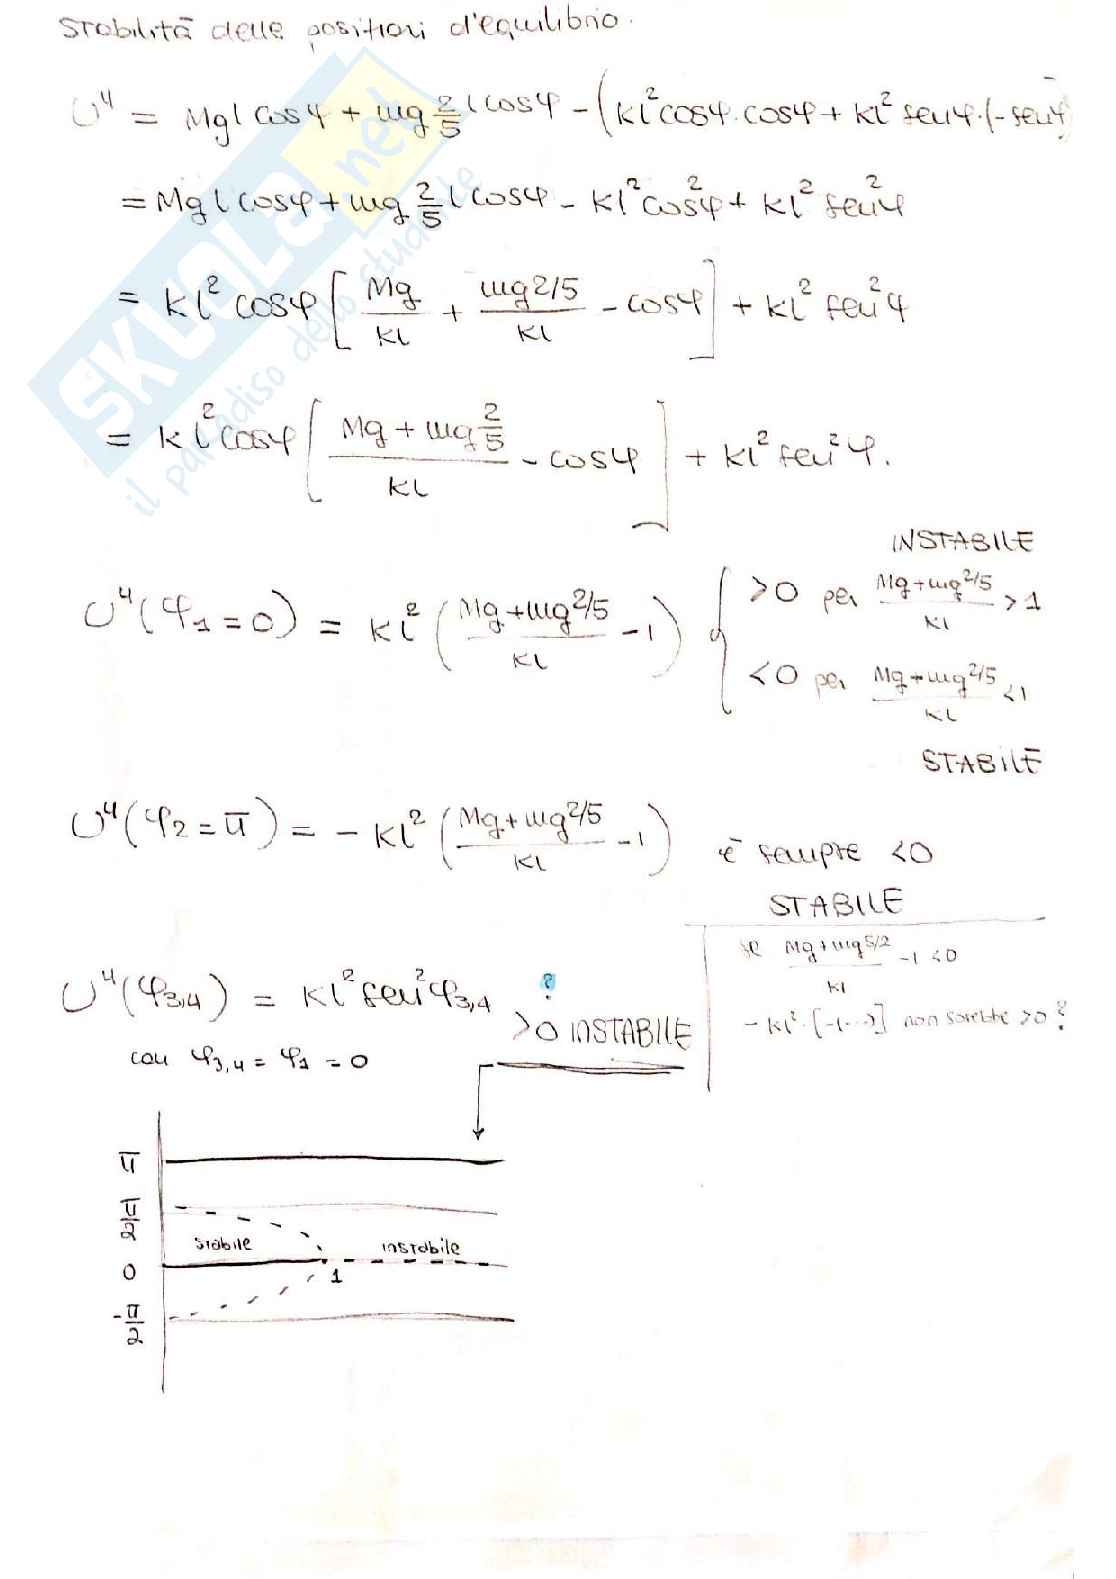 Stabilità delle posizioni d'equilibrio.
U" = Mgl cosφ + mg 2/5 l cosφ - (kl² cosφ · cosφ + kl² senφ · (-senφ)
= Mgl cosφ + mg 2/5 l cosφ - kl² cos²φ + kl² sen²φ
= kl² cosφ [ Mg/kl + mg2/5/kl - cosφ ] + kl² sen²φ
= kl² cosφ [ Mg + mg 2/5 / kl - cosφ ] + kl² sen²φ.
INSTABILE
U"(φ1 = 0) = kl² ( Mg + mg 2/5 / kl - 1 ) { >0 per Mg + mg 2/5 / kl > 1
<0 per Mg + mg 2/5 / kl < 1
STABILE
U"(φ2 = π) = - kl² ( Mg + mg 2/5 / kl - 1 ) è sempre <0
STABILE
se Mg + mg 5/2 / kl - 1 < 0
- kl² · [-1...] non sarebbe >0 ?
U"(φ3,4) = kl² sen²φ3,4 ? >0 INSTABILE
con φ3,4 = φ1 = 0
π
π/2
stabile instabile
0 1
-π/2
SKUOLA.net
il paradiso dello studente